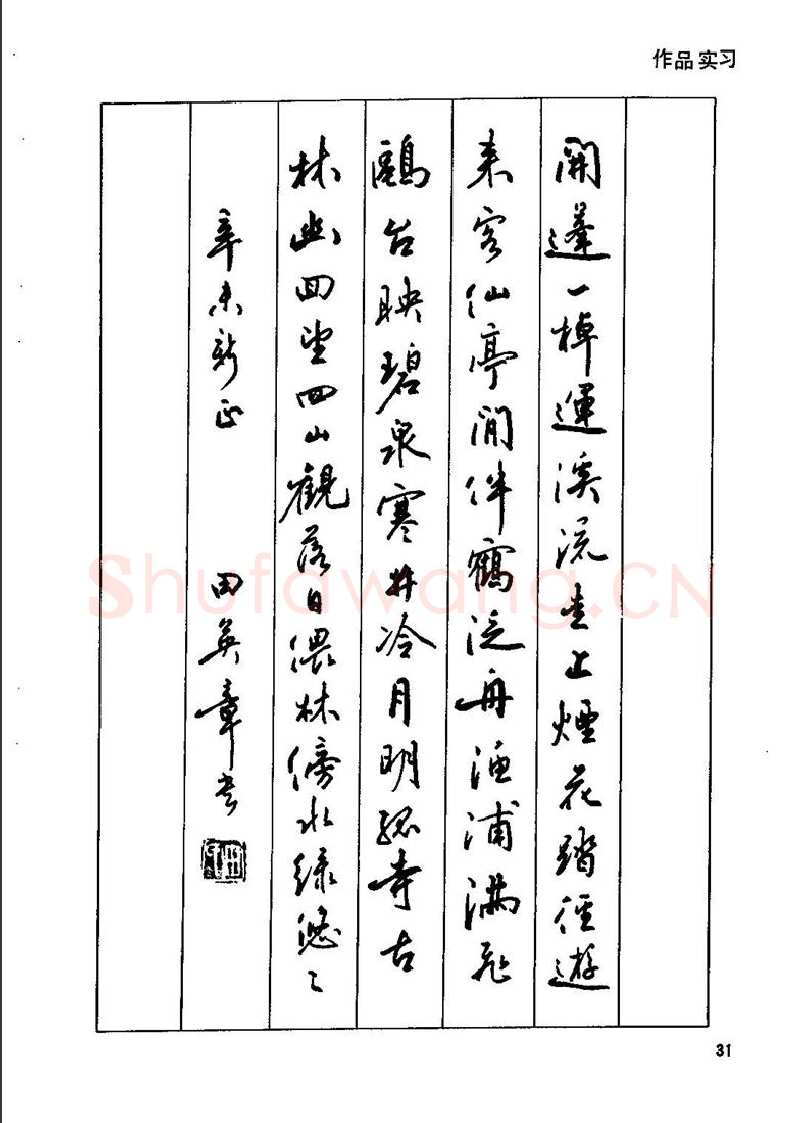 作品实习
開蓬一棹運溪流走上煙花踏徑遊
來客仙亭閒伴鶴泛舟漁浦滿飛
鷗台映碧泉寒井冷月明孤寺古
林幽回望四山觀落日偎林傍水綠悠〻
辛未新正
田英章書
Shufawang.CN
31